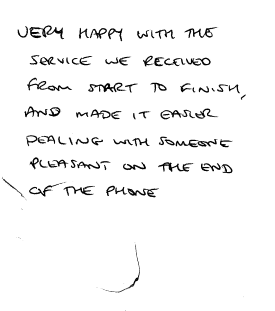 VERY HAPPY WITH THE
SERVICE WE RECEIVED
FROM START TO FINISH,
AND MADE IT EASIER
DEALING WITH SOMEONE
PLEASANT ON THE END
OF THE PHONE